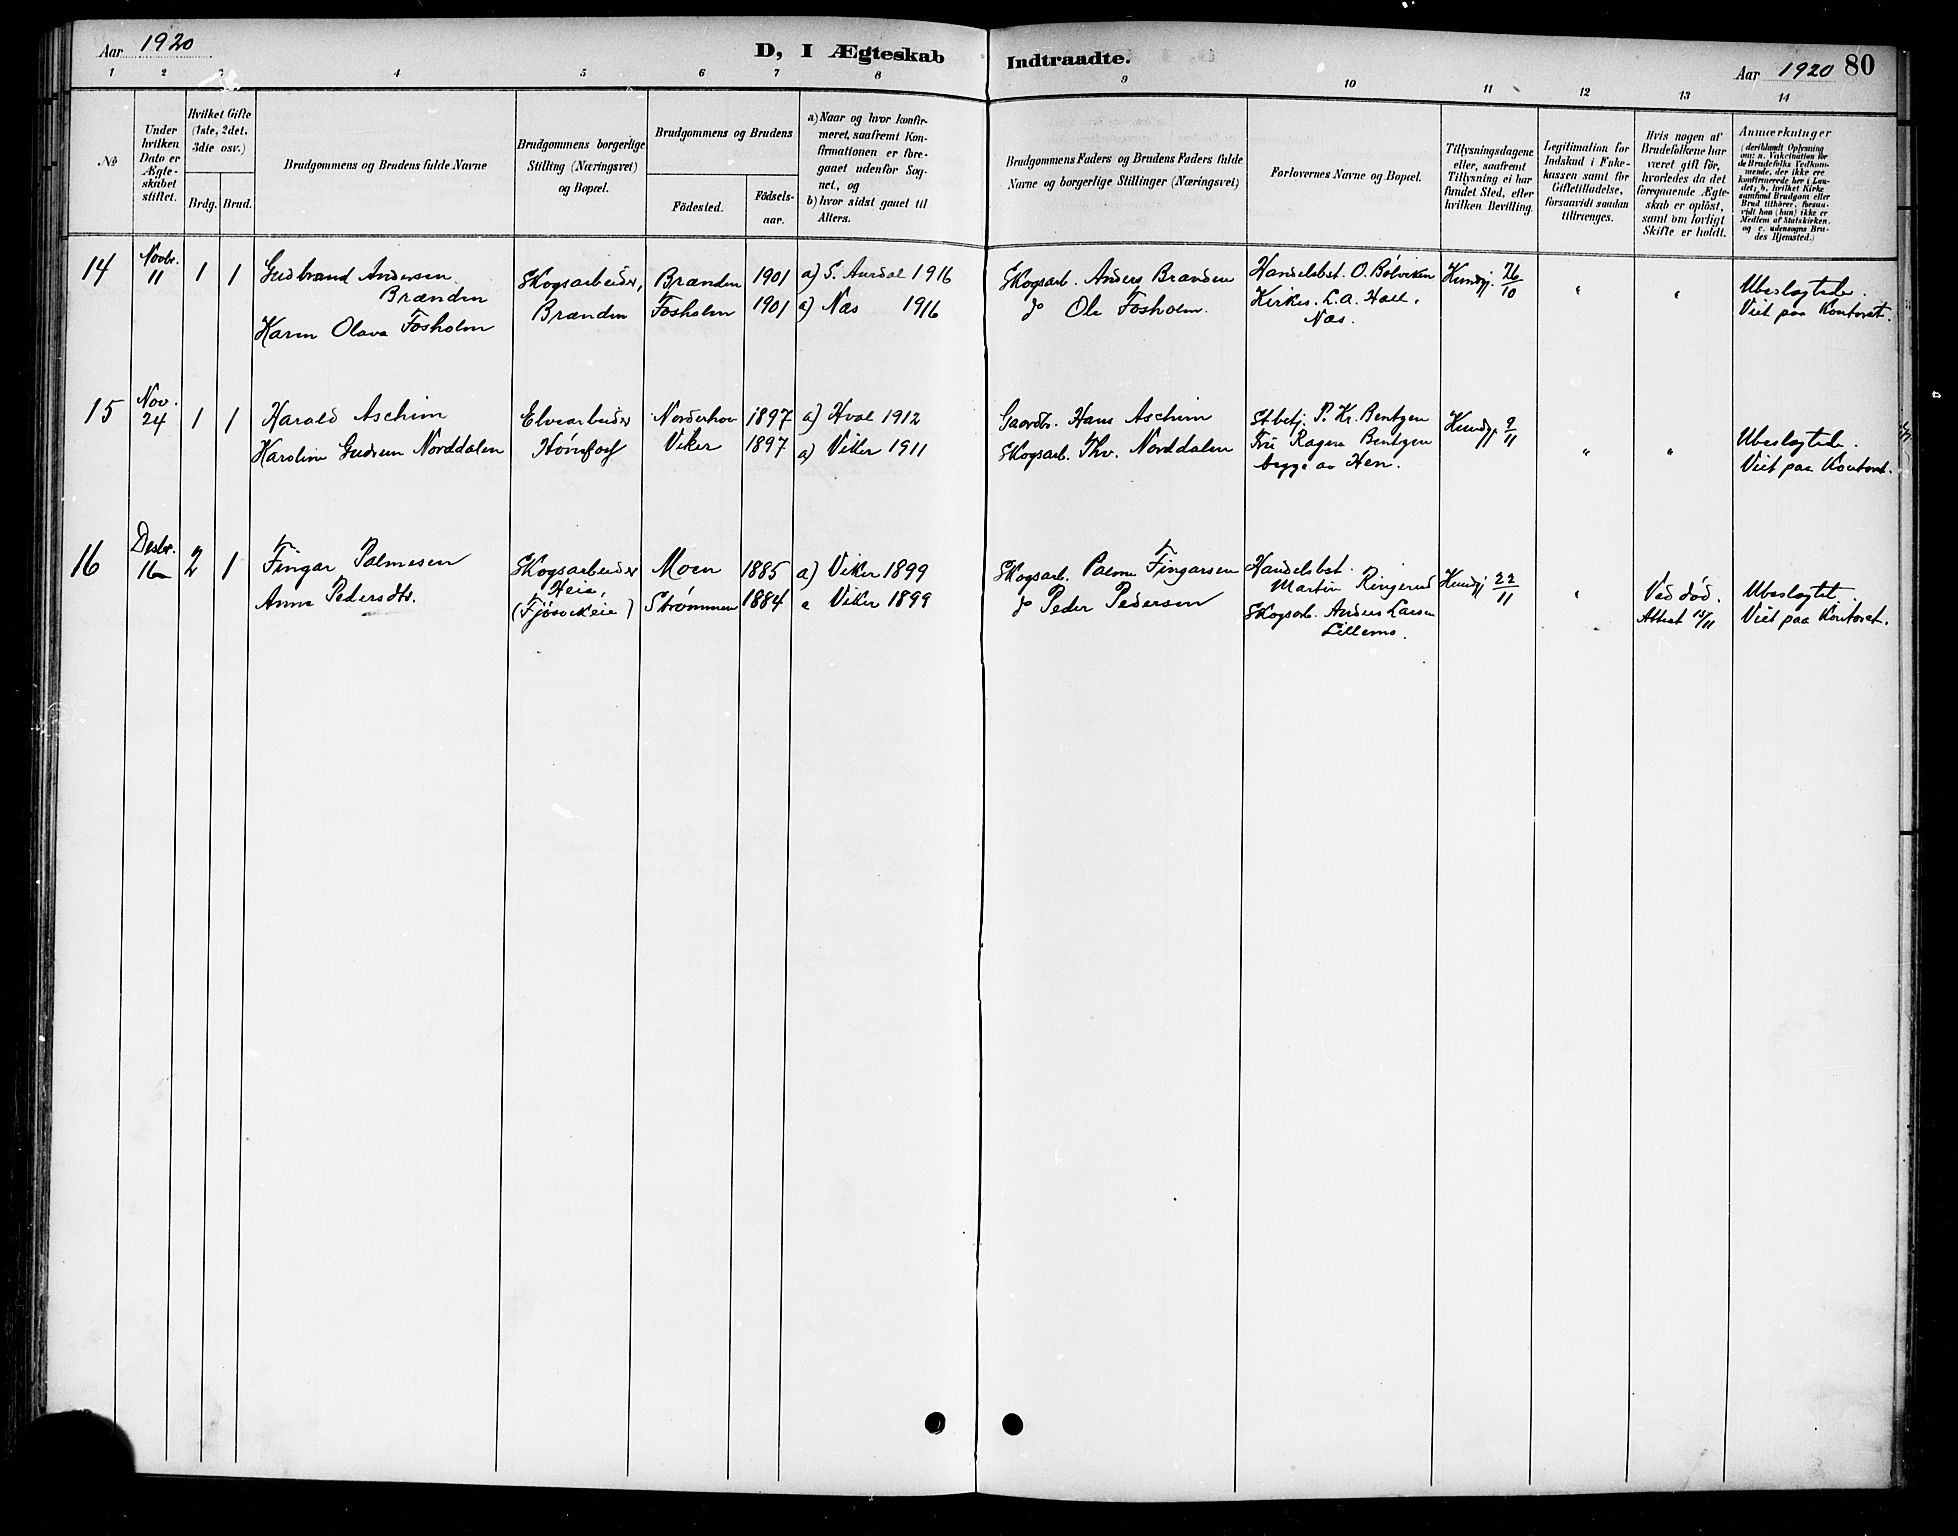 Aar 1920
D, I Ægteskab Indtraadte.
Aar 1920 80
1 2 3 4 5 6 7 8 9 10 11 12 13 14
№
Under
hvilken
Dato er
Ægte-
skabet
stiftet.
Hvilket Gifte
(1ste, 2det,
3die osv.)
Brdg. Brud.
Brudgommens og Brudens fulde Navne
Brudgommens borgerlige
Stilling (Næringsvei)
og Bopæl.
Brudgommens og Brudens
Födested.
Födsels-
aar.
a) Naar og hvor konfir-
meret, saafremt Kon-
firmationen er fore-
gaaet udenfor Sog-
net, og
b) hvor sidst gaaet til
Alters.
Brudgommens Faders og Brudens Faders fulde
Navne og borgerlige Stillinger (Næringsvei)
Forlovernes Navne og Bopæl.
Tillysningsdagene
eller, saafremt
Tillysning ei har
fundet Sted, efter
hvilken Bevilling.
Legitimation for
Indskud i Enke-
kassen samt for
Giftetilladelse,
forsaavidt saadan
tiltrænges.
Hvis nogen af
Brudefolkene har
været gift før,
hvorledes da det
foregaaende Ægte-
skab er oplöst,
samt om lovligt
Skifte er holdt.
Anmærkninger
(deriblandt Oplysning
om: a. Vakcination for
de Brudefolks Vedkom-
mende, der ikke ere
konfirmerede her i Lan-
det; b. hvilket Kirke-
samfund Brudgom eller
Brud tilhörer, forsaa-
vidt han (hun) ikke er
Medlem af Statskirken,
og c. udensogns Bru-
des Hjemsted.)
14 Novbr. 11 1 1
Gudbrand Andersen
Brænden
Karen Olava Fosholm
Skogsarbeider,
Brænden
Brænden 1901 a) S. Aurdal 1916
Fosholm 1901 a) Næs 1916
Skogsarb. Anders Brænden
do Ole Fosholm.
Handelsbst. O. Bølviken
Kirkes. L.A. Hall,
Næs.
Kundgj. 26/10
" "
Ubeslægtede.
Viet paa Kontoret.
15 Nov. 24 1 1
Harald Aschim
Karoline Gudrun Norddalen
Elvearbeider
Hønefoss
Norderhov 1897 a) Hval 1912
Viker 1897 a) Viker 1911
Gaardbr. Hans Aschim
Skogsarb. Thv. Norddalen
St.betj. P. Kr. Bentzen
Fru Ragna Bentzen
begge av Hen.
Kundgj. 9/11
" "
Ubeslægtede.
Viet paa Kontoret.
16 Desbr. 16 2 1
Fingar Palmesen
Anne Pedersdtr.
Skogsarbeider
Heia,
(Fjøsvikeie)
Moen 1885 a) Viker 1899
Strømmen 1884 a Viker 1899
Skogsarb. Palme Fingarsen
do Peder Pedersen
Handelsbst.
Martin Ringerud
Skogsarb. Anders Larsen
Lillemo.
Kundgj 22/11
"
Ved død.
Attest 15/11
Ubeslægtet.
Viet paa Kontoret.